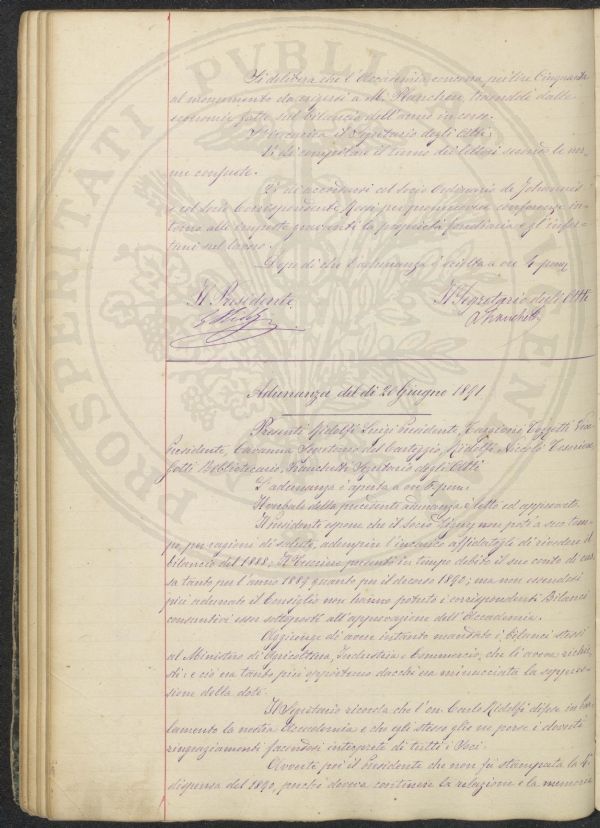 Si delibera che l'Accademia concorra per lire Cinquanta
al monumento da erigersi a M. Planchon, traendole dalle
economie fatte sul bilancio dell'anno in corso.
S'incarica il Segretario degli Atti:
1º di compilare il turno dei lettori secondo le nor-
me consuete.
2º di accordarsi col socio Ordinario de Johannis
e col socio Corrispondente Rossi per promuovere conferenze in-
torno alle imposte gravanti la proprietà fondiaria e gl'infor-
tuni sul lavoro.
Dopo di che l'adunanza è sciolta a ore 4 pom.
Il Presidente
Il Segretario degli Atti
L. Ridolfi
A. Franchetti
Adunanza del dì 20 Giugno 1891.
Presenti Ridolfi Luigi Presidente, Targioni Tozzetti Vice
Presidente, Cavanna Segretario del Carteggio, Ridolfi Niccolò Tesoriere,
Gotti Bibliotecario, Franchetti Segretario degli Atti.
L'adunanza è aperta a ore 5 pom.
Il verbale della precedente adunanza è letto ed approvato.
Il Presidente espone che il Socio non potè a suo tem-
po, per ragioni di salute, adempire l'incarico affidatogli di rivedere il
bilancio del 1888. Il Tesoriere presentò in tempo debito il suo conto di cas-
sa tanto per l'anno 1889 quanto per il decorso 1890; ma non essendosi
più adunato il Consiglio non hanno potuto i corrispondenti Bilanci
consuntivi esser sottoposti all'approvazione dell'Accademia.
Aggiunge di avere intanto mandato i bilanci stessi
al Ministero di Agricoltura, Industria e Commercio, che li aveva richie-
sti: e ciò era tanto più opportuno dacchè era minacciata la soppres-
sione della dote.
Il Segretario ricorda che l'on. Carlo Ridolfi difese in Par-
lamento la nostra Accademia e che egli stesso glie ne porse i dovuti
ringraziamenti facendosi interprete di tutti i Soci.
Avverte poi il Presidente che non fu stampata la 4ª
dispensa del 1890, perchè doveva contenere la relazione e la memoria
PROSPERITATI PUBLICAE